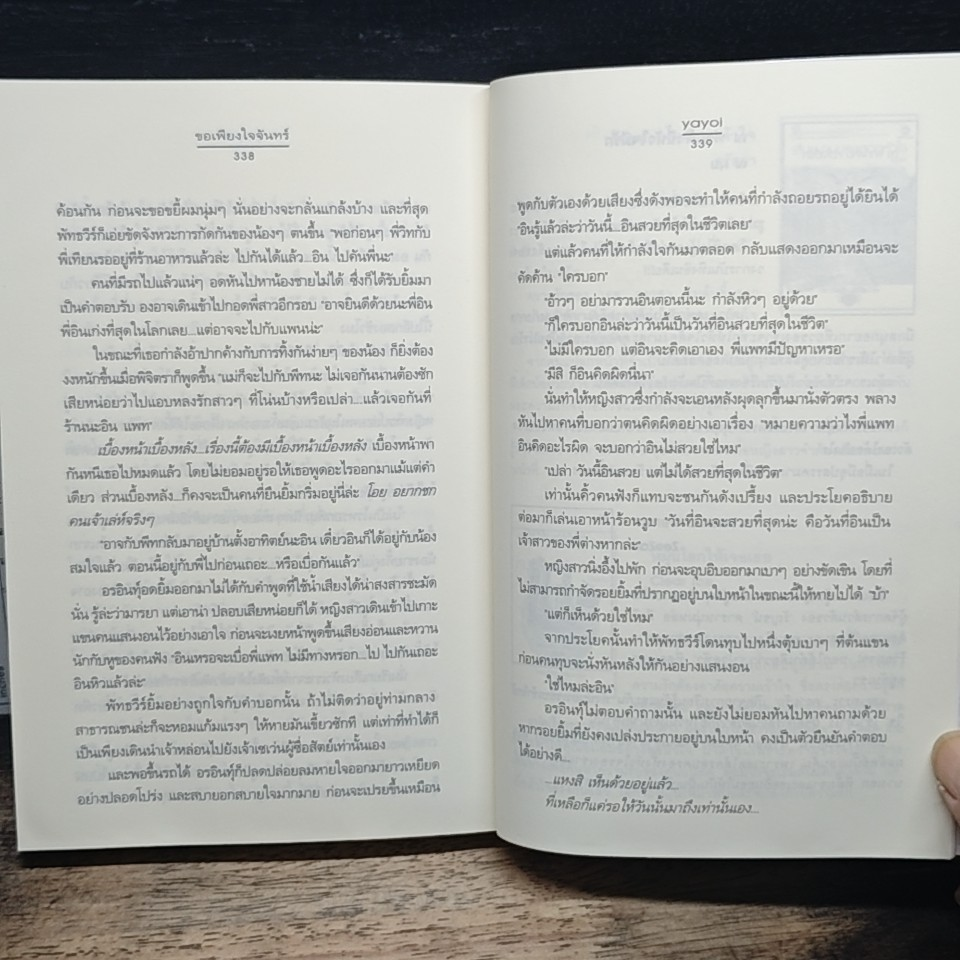 ขอเพียงใจจันทร์
338
ค้อนกัน ก่อนจะขอขยี้ผมนุ่มๆ นั่นอย่างจะกลั่นแกล้งบ้าง และที่สุด
พัทธวีร์ก็เอ่ยขัดจังหวะการกัดกันของน้องๆ ตนขึ้น "พอก่อนๆ พี่วิทกับ
พี่เทียนรออยู่ที่ร้านอาหารแล้วล่ะ ไปกันได้แล้ว...อิน ไปคันพี่นะ"
คนที่มีรถไปแล้วแน่ๆ อดหันไปหาน้องชายไม่ได้ ซึ่งก็ได้รับยิ้มมา
เป็นคำตอบรับ องอาจเดินเข้าไปกอดพี่สาวอีกรอบ "อาจยินดีด้วยนะพี่อิน
พี่อินเก่งที่สุดในโลกเลย...แต่อาจจะไปกับแพนน่ะ"
ในขณะที่เธอกำลังอ้าปากค้างกับการทิ้งกันง่ายๆ ของน้อง ก็ยิ่งต้อง
งงหนักขึ้นเมื่อพิจิตราก็พูดขึ้น "แม่ก็จะไปกับพีทนะ ไม่เจอกันนานต้องซัก
เสียหน่อยว่าไปแอบหลงรักสาวๆ ที่โน่นบ้างหรือเปล่า...แล้วเจอกันที่
ร้านนะอิน แพท"
เบื้องหน้าเบื้องหลัง...เรื่องนี้ต้องมีเบื้องหน้าเบื้องหลัง เบื้องหน้าพา
กันหนีเธอไปหมดแล้ว โดยไม่ยอมอยู่รอให้เธอพูดอะไรออกมาแม้แต่คำ
เดียว ส่วนเบื้องหลัง...ก็คงจะเป็นคนที่ยืนยิ้มกริ่มอยู่นี่ล่ะ โอย อยากชก
คนเจ้าเล่ห์จริงๆ
"อาจกับพีทกลับมาอยู่บ้านตั้งอาทิตย์นะอิน เดี๋ยวอินก็ได้อยู่กับน้อง
สมใจแล้ว ตอนนี้อยู่กับพี่ไปก่อนเถอะ...หรือเบื่อกันแล้ว"
อรอินทุ์อดยิ้มออกมาไม่ได้กับคำพูดที่ใช้น้ำเสียงได้น่าสงสารชะมัด
นั่น รู้ล่ะว่ามารยา แต่เอาน่า ปลอบเสียหน่อยก็ได้ หญิงสาวเดินเข้าไปเกาะ
แขนคนแสนงอนไว้อย่างเอาใจ ก่อนจะเงยหน้าพูดขึ้นเสียงอ่อนและหวาน
นักกับหูของคนฟัง "อินเหรอจะเบื่อพี่แพท ไม่มีทางหรอก...ไป ไปกันเถอะ
อินหิวแล้วล่ะ"
พัทธวีร์ยิ้มอย่างถูกใจกับคำบอกนั้น ถ้าไม่ติดว่าอยู่ท่ามกลาง
สาธารณชนล่ะก็จะหอมแก้มแรงๆ ให้หายมันเขี้ยวซักที แต่เท่าที่ทำได้ก็
เป็นเพียงเดินนำเจ้าหล่อนไปยังเจ้าเซเว่นผู้ซื่อสัตย์เท่านั้นเอง
และพอขึ้นรถได้ อรอินทุ์ก็ปลดปล่อยลมหายใจออกมายาวเหยียด
อย่างปลอดโปร่ง และสบายอกสบายใจมากมาย ก่อนจะเปรยขึ้นเหมือน
yayoi
339
พูดกับตัวเองด้วยเสียงซึ่งดังพอจะทำให้คนที่กำลังถอยรถอยู่ได้ยินได้
"อินรู้แล้วล่ะว่าวันนี้...อินสวยที่สุดในชีวิตเลย"
แต่แล้วคนที่ให้กำลังใจกันมาตลอด กลับแสดงออกมาเหมือนจะ
คัดค้าน "ใครบอก"
"อ้าวๆ อย่ามารวนอินตอนนี้นะ กำลังหิวๆ อยู่ด้วย"
"ก็ใครบอกอินล่ะว่าวันนี้เป็นวันที่อินสวยที่สุดในชีวิต"
"ไม่มีใครบอก แต่อินจะคิดเอาเอง พี่แพทมีปัญหาเหรอ"
"มีสิ ก็อินคิดผิดนี่นา"
นั่นทำให้หญิงสาวซึ่งกำลังจะเอนหลังผุดลุกขึ้นมานั่งตัวตรง พลาง
หันไปหาคนที่บอกว่าตนคิดผิดอย่างเอาเรื่อง "หมายความว่าไงพี่แพท
อินคิดอะไรผิด จะบอกว่าอินไม่สวยใช่ไหม"
"เปล่า วันนี้อินสวย แต่ไม่ได้สวยที่สุดในชีวิต"
เท่านั้นคิ้วคนฟังก็แทบจะชนกันดังเปรี้ยง และประโยคอธิบาย
ต่อมาก็เล่นเอาหน้าร้อนวูบ "วันที่อินจะสวยที่สุดน่ะ คือวันที่อินเป็น
เจ้าสาวของพี่ต่างหากล่ะ"
หญิงสาวนิ่งอึ้งไปพัก ก่อนจะอุบอิบออกมาเบาๆ อย่างขัดเขิน โดยที่
ไม่สามารถกำจัดรอยยิ้มที่ปรากฏอยู่บนใบหน้าในขณะนี้ให้หายไปได้ "บ้า"
"แต่ก็เห็นด้วยใช่ไหม"
จากประโยคนั้นทำให้พัทธวีร์โดนทุบไปหนึ่งตุ้บเบาๆ ที่ต้นแขน
ก่อนคนทุบจะนั่งหันหลังให้กันอย่างแสนงอน
"ใช่ไหมล่ะอิน"
อรอินทุ์ไม่ตอบคำถามนั้น และยังไม่ยอมหันไปหาคนถามด้วย
หากรอยยิ้มที่ยังคงเปล่งประกายอยู่บนใบหน้า คงเป็นตัวยืนยันคำตอบ
ได้อย่างดี...
...แหงสิ เห็นด้วยอยู่แล้ว...
ที่เหลือก็แค่รอให้วันนั้นมาถึงเท่านั้นเอง...